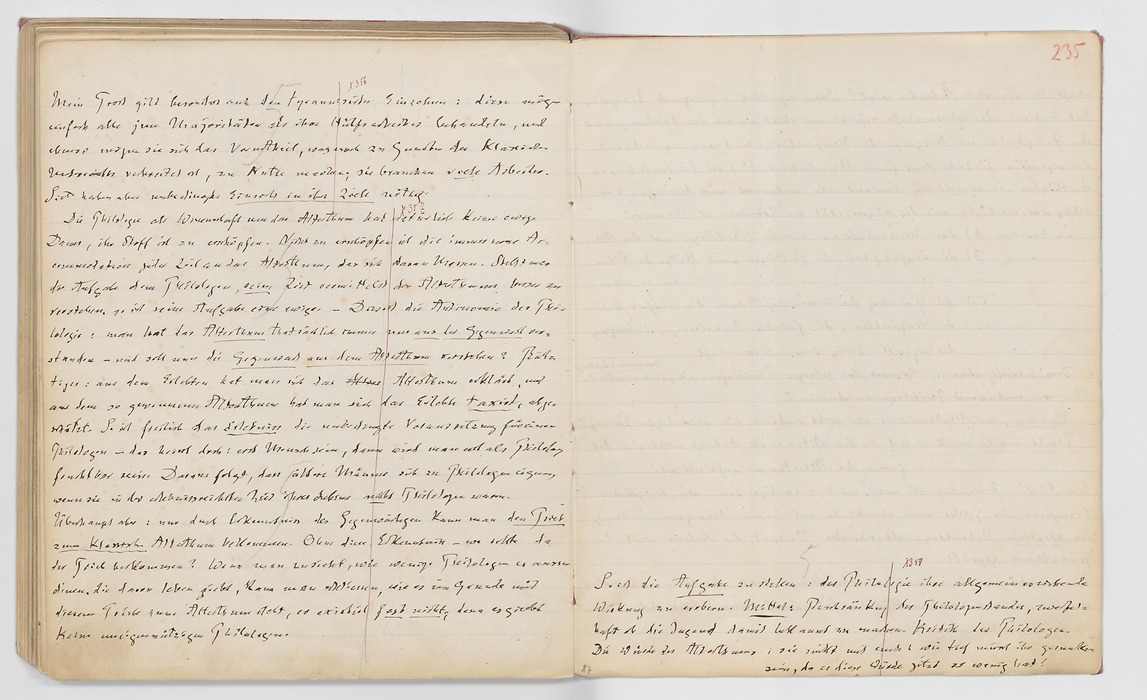 X 356
Mein Trost gilt besonders auch den tyrannisirten Einzelnen: diese mögen
einfach alle jene Majoritäten als ihre Hülfsarbeiter behandeln, und
ebenso mögen sie sich das Vorurtheil, welches zu Gunsten des klassischen
Unterrichts verbreitet ist, zu Nutze machen, sie brauchen viele Arbeiter.
Sie haben aber unbedingte Einsicht in ihre Ziele nöthig.
Die Philologie als Wissenschaft um das Alterthum hat natürlich keine ewige
Dauer, ihr Stoff ist zu erschöpfen. Nicht zu erschöpfen ist die immer neue Ac-
commodation jeder Zeit an das Alterthum, das sich daran Messen. Stellt man
die Aufgabe dem Philologen, seine Zeit vermittelst des Alterthums besser zu
verstehen, so ist seine Aufgabe eine ewige. — Dies ist die Antinomie der Philo-
logie: man hat das Alterthum thatsächlich immer nur aus der Gegenwart ver-
standen — und soll nun die Gegenwart aus dem Alterthum verstehen? Rich-
tiger: aus dem Erlebten hat man sich das Alterthum erklärt, und
aus dem so gewonnenen Alterthum hat man sich das Erlebte taxirt, abge-
schätzt. So ist freilich das Erlebniss die unbedingte Voraussetzung für einen
Philologen — das heisst doch: erst Mensch sein, dann wird man erst als Philolog
fruchtbar sein. Daraus folgt, dass ältere Männer sich zu Philologen eignen,
wenn sie in der erlebnissreichsten Zeit ihres Lebens nicht Philologen waren.
Überhaupt aber: nur durch Erkenntniss des Gegenwärtigen kann man den Trieb
zum klassisch. Alterthum bekommen. Ohne diese Erkenntniss — wo sollte da
der Trieb herkommen? Wenn man zusieht, wie wenige Philologen es ausser
denen, die davon leben giebt, kann man schliessen, wie es im Grunde mit
diesem Triebe zum Alterthum steht, er existirt fast nicht, denn es giebt
keine uneigennützigen Philologen.
235
X 358
So ist die Aufgabe zu stellen: der Philologie ihre allgemein erziehende
Wirkung zu erobern. Mittel: Beschränkung des Philologenstandes, zweifel-
haft ob die Jugend damit bekannt zu machen. Kritik des Philologen.
Die Würde des Alterthums: sie sinkt mit euch: wie tief müsst ihr gesunken
sein, da es diese Würde jetzt so wenig hat!